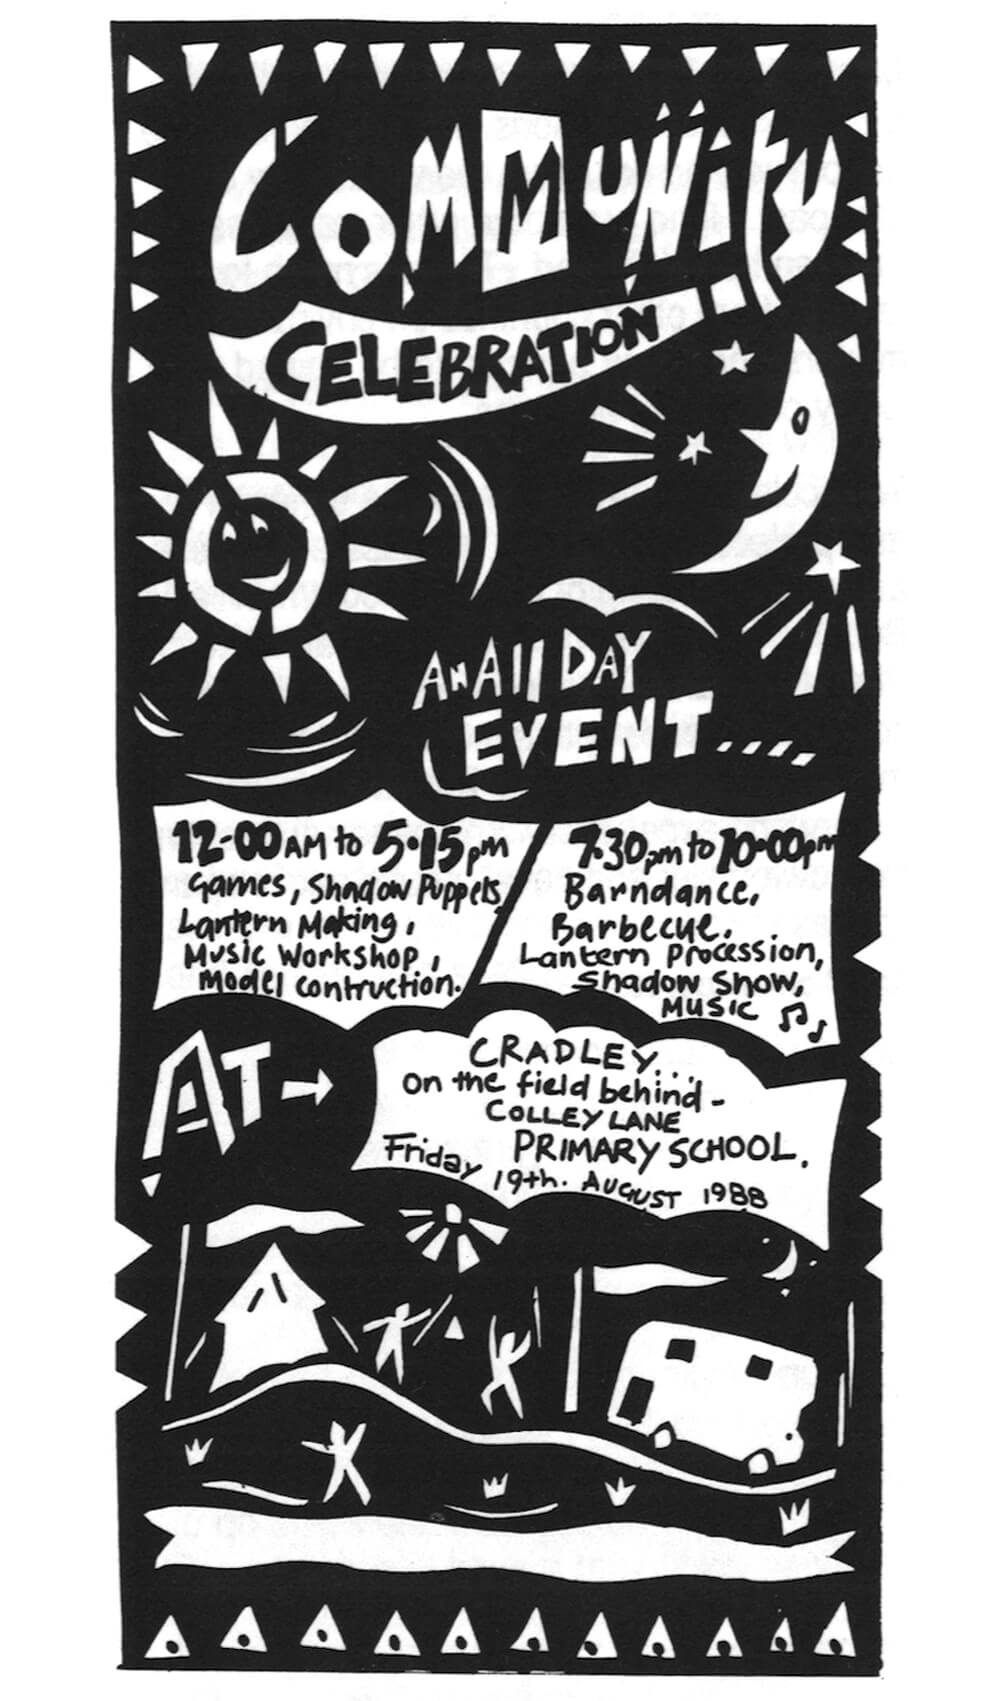 COMMUNity
CELEBRATION
AN All DAY
EVENT.....
12-00 AM to 5.15pm
Games, Shadow Puppets,
Lantern Making,
Music Workshop,
Model contruction.
7.30pm to 10.00pm
Barndance,
Barbecue.
Lantern Procession,
Shadow Show,
MUSIC
AT →
CRADLEY...
on the field behind -
COLLEY LANE
PRIMARY SCHOOL.
Friday 19th. AUGUST 1988